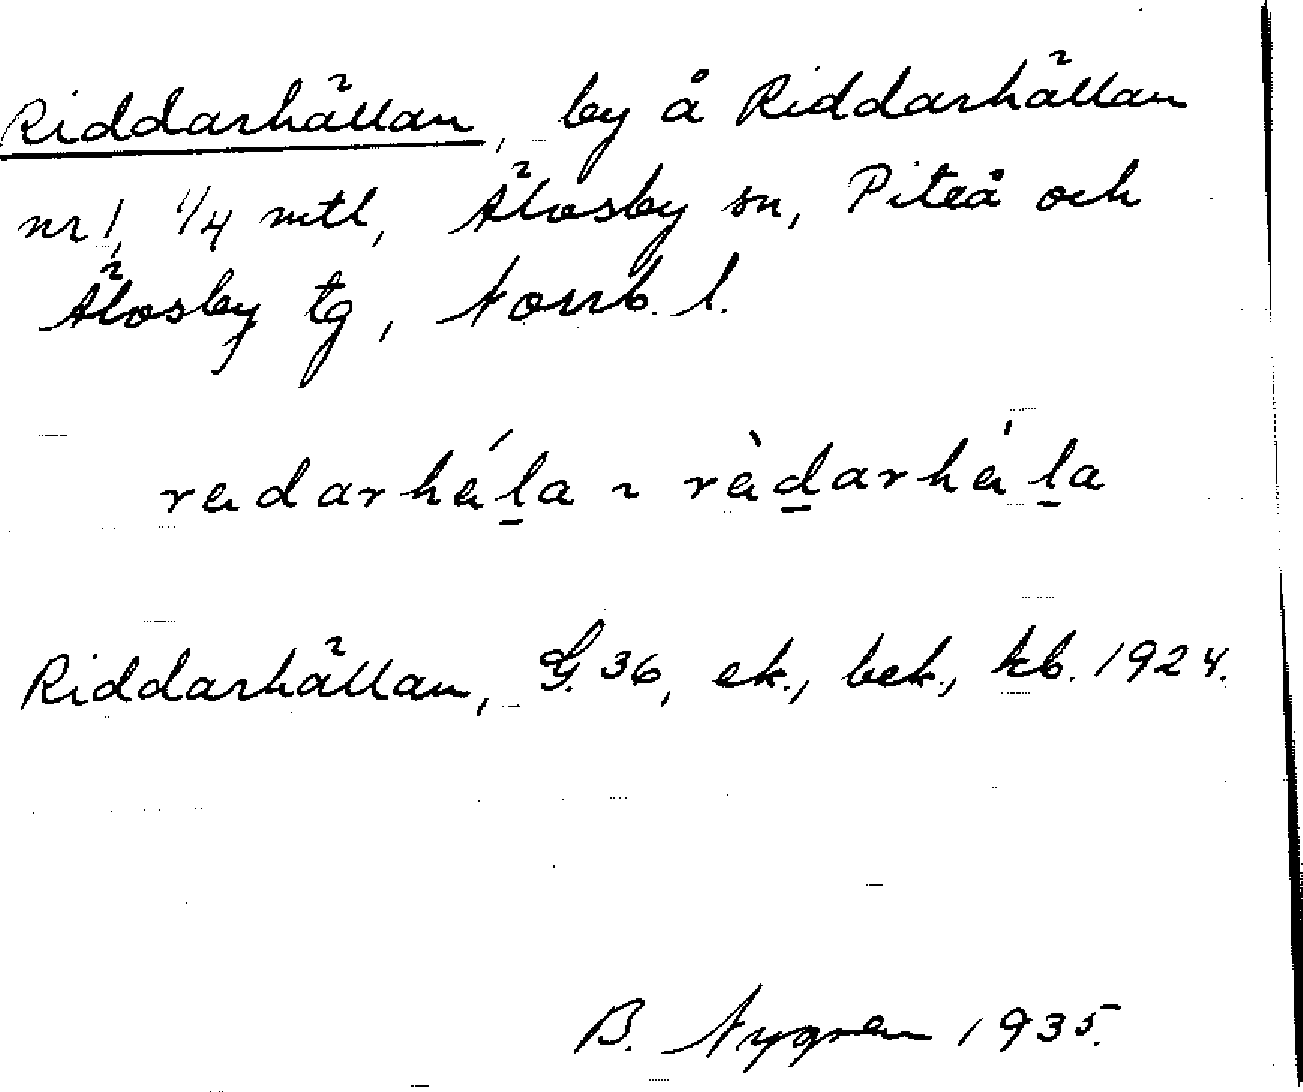 Riddarhällan, by å Riddarhällan
nr 1, 1/4 mtl, Älvsby sn, Piteå och
Älvsby tg, Norrb. l.
Riddarhällan, G. 36, ek., bek., kb. 1924.
B. Nygren 1935.